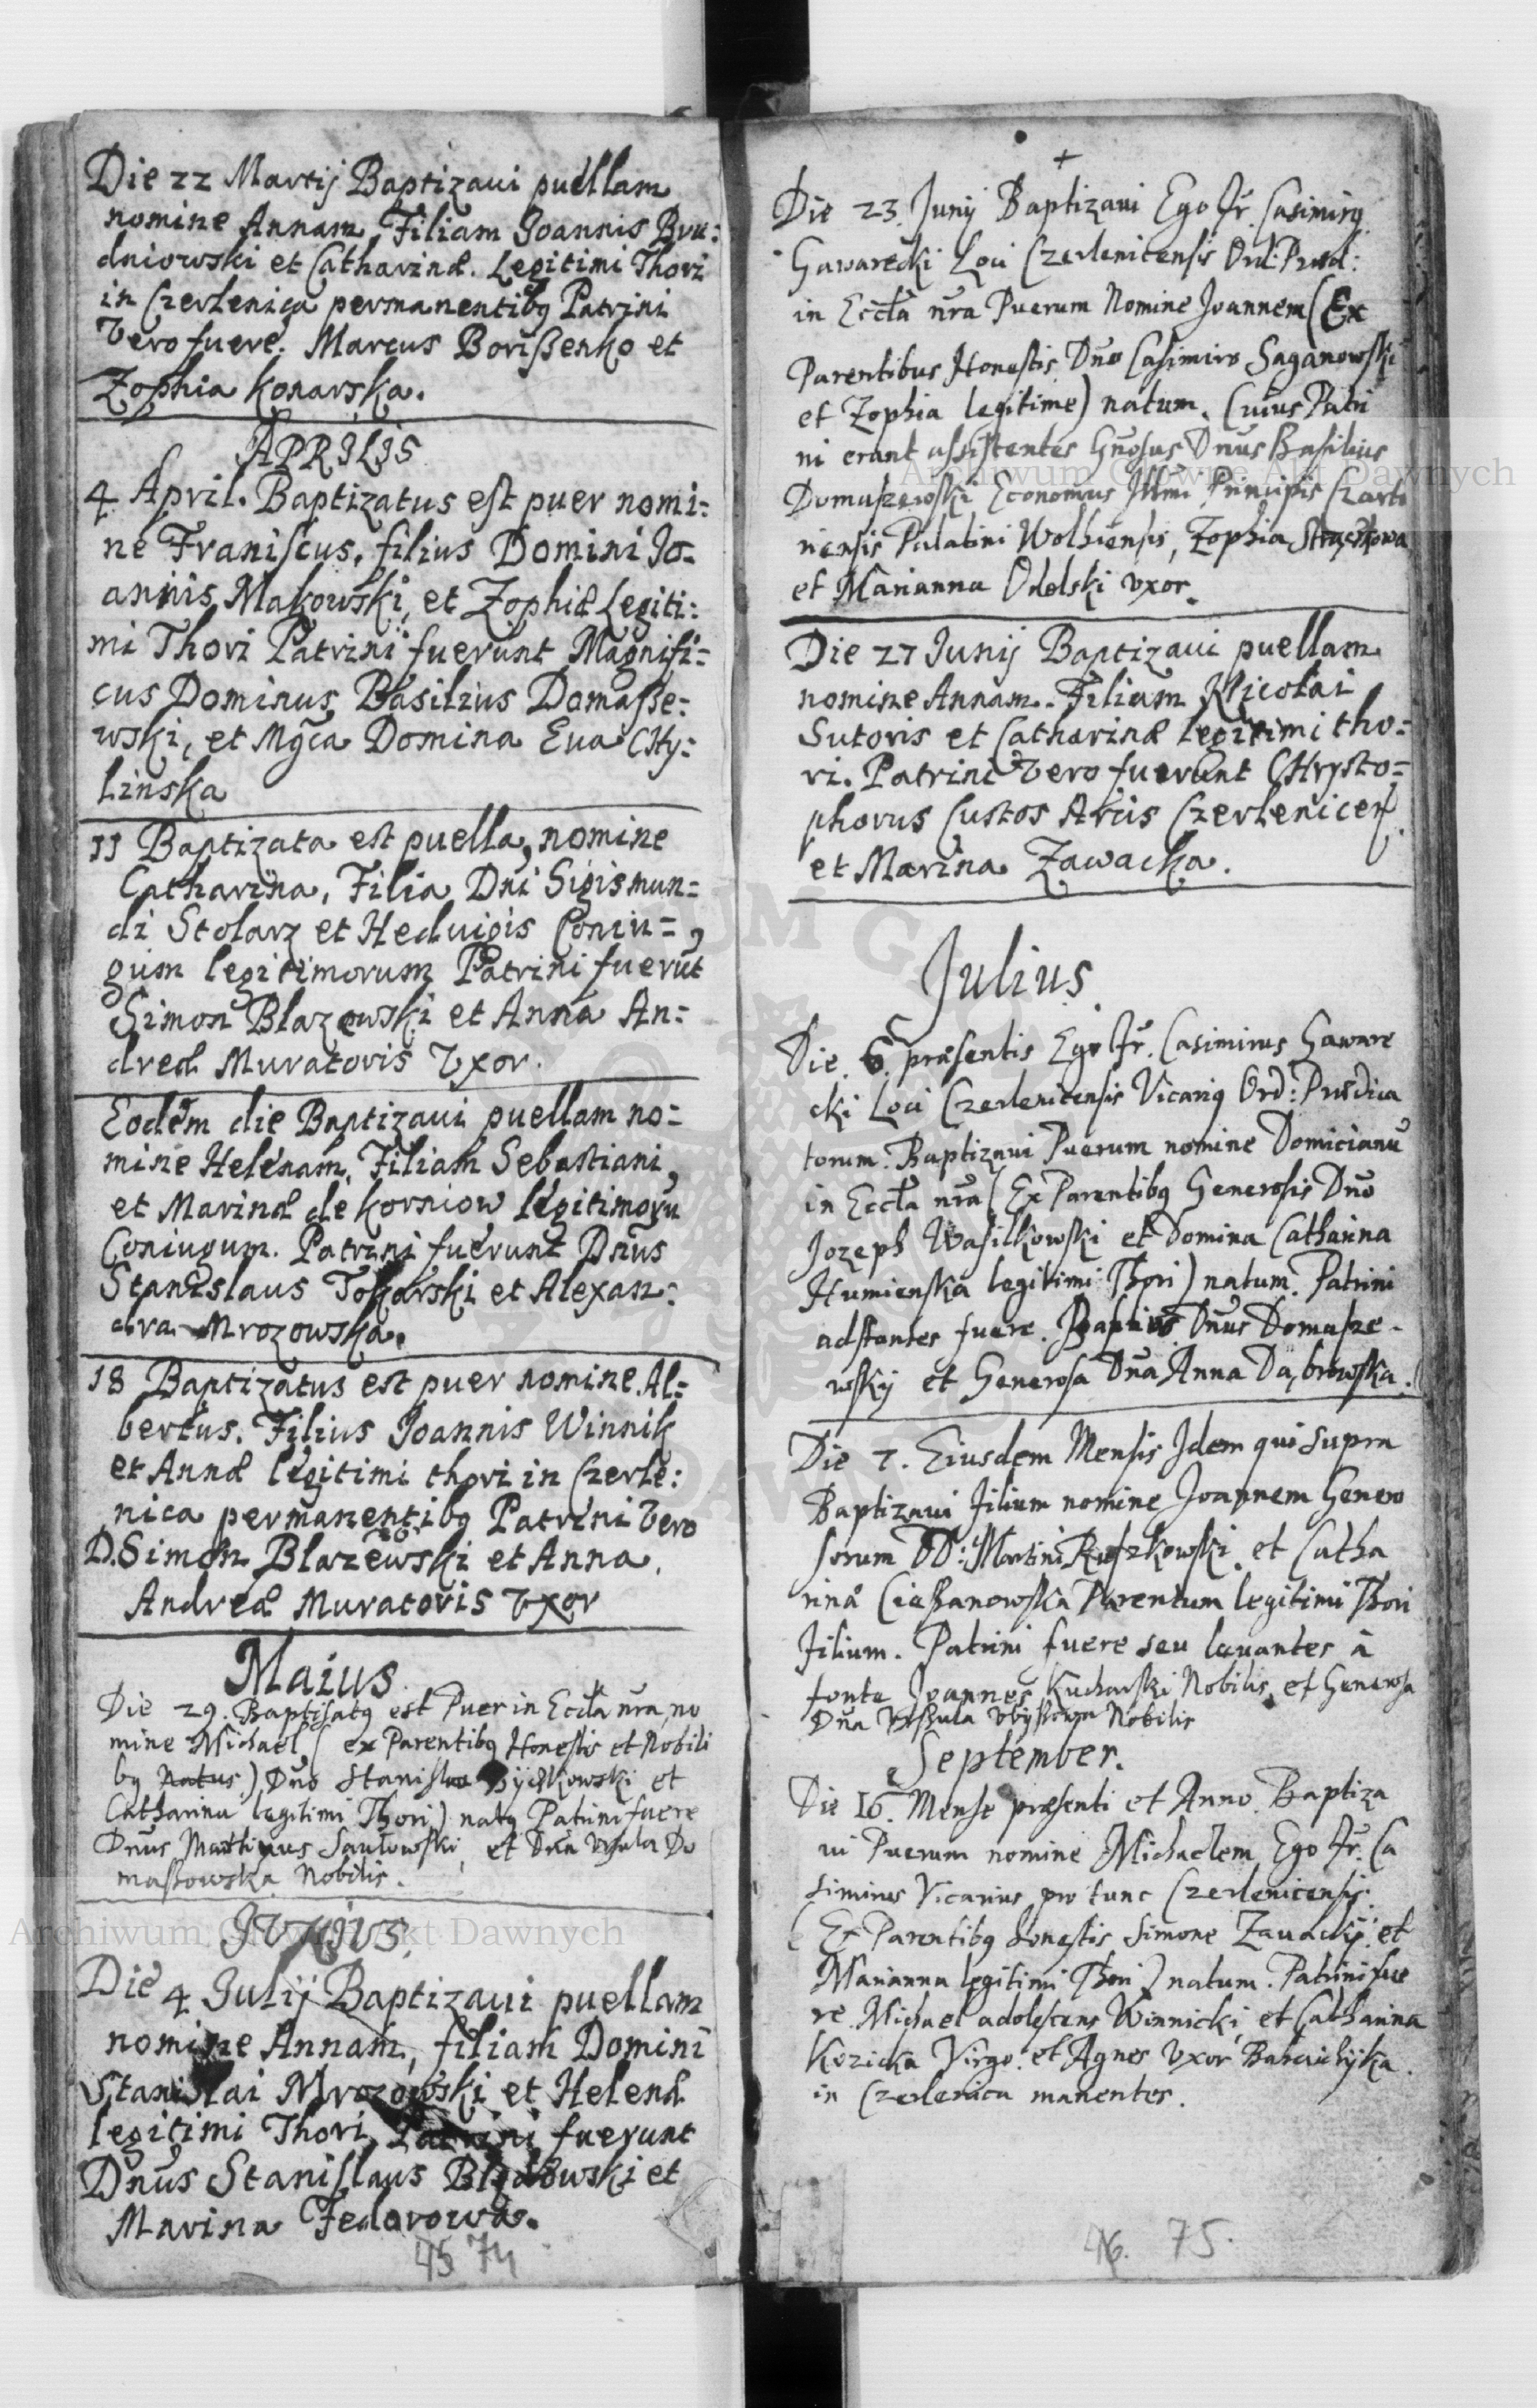 Die 22 Martij Baptizaui puellam
nomine Annam, Filiam Joannis Bru:
dniowski et Catharinæ. Legitimi Thori
in Czerlenica permanentibq Patrini
Vero fuere. Marcus Borißenko et
Zophia Konarska.
APRILIS
4 April. Baptizatus est puer nomi:
ne Franiscus, filius Domini Jo-
annis Makowski, et Zophiæ Legiti:
mi Thori Patrini fuerunt Magnifi:
cus Dominus Basilius Domaße:
wski, et Mgca Domina Eua CHy:
linska
11 Baptizata est puella, nomine
Catharina, Filia Dni Sigismun=
di Stolarz et Heduigis Coniu=
gum legitimorum Patrini fuerut
Simon Blazewski et Anna An:
dreæ Muratoris Vxor.
Eodem die Baptizaui puellam no=
mine Helenam, Filiam Sebastiani,
et Marinæ de Korniow legitimoru
Coniugum. Patrini fuerunt Dnus
Stanislaus Tokarski et Alexan:
dra Mrozowska.
18 Baptizatus est puer nomine Al=
bertus. Filius Joannis Winnik
et Annæ legitimi thori in Czerle:
nica permanentibq Patrini Vero
D. Simon Blazewski et Anna
Andreæ Muratoris Vxor
Maius
Die 29. Baptisatq est Puer in Eccla nra, no
mine Michael, (ex Parentibq Honestis et Nobili
bq Natus) Dno Stanislao et
Catharina legitimi Thori) natq Patrini fuere
Dnus Mathius et Dna Vrsula Do
maßowska Nobilis.
JUNIUS
Die 4 Julij Baptizaui puellam
nomine Annam, filiam Domini
Stanislai Mrozowski et Helenæ
legitimi Thori, Patrini fuerunt
Dnus Stanislaus et
Marina Fedorowa.
45 74
Die 23 Junij Baptizaui Ego Fr. Casimirq
Gawarecki Loci Czerlenicensis Ord: Præd:
in Eccla nra Puerum Nomine Joannem (Ex
Parentibus Honestis Dno Casimiro Saganowski
et Zophia legitime) natum. Cuius Patri
ni erant assistentes Gnosus Dnus Basilius
Domaszewski Economus Illmi Principis Czarto
riensis Palatini Wolhiensis, Zophia
et Marianna Odolski vxor.
Die 27 Junij Baptizaui puellam
nomine Annam. Filiam Nicolai
Sutoris et Catharinæ legitimi tho=
ri. Patrini Vero fuerunt CHrysto=
phorus Custos Arcis Czerlenicen
et Marina Zawacka.
Julius
Die 6 præsentis Ego Fr. Casimirus Gaware
cki Loci Czerlenicensis Vicariq Ord: Prædica
torum. Baptizaui Puerum nomine Domicianu
in Eccla nra (Ex Parentibq Generosis Dno
Jozeph Wasilkowski et Domina Catharina
Humienska legitimi Thori) natum. Patrini
adstantes fuere. Dnus Domasze-
wskij et Generosa Dna Anna Dąbrowska.
Die 7. Eiusdem Mensis Idem qui supra
Baptizaui Filium nomine Joannem Genero
sorum DD: Martini et Catha
rinæ Cießanowska Parentum legitimi Thori
Filium. Patrini fuere seu leuantes à
fonte Joannes Kucharski Nobilis, et Generosa
Dna Vrßula Nobilis
September.
Die 16. Mense præsenti et Anno Baptiza
ui Puerum nomine Michaelem Ego Fr. Ca
simirus Vicarius pro tunc Czerlenicensis.
(Ex Parentibq honestis Simone Zauackij et
Marianna legitimi Thori) natum. Patrini fue
re Michael adolescens Winnicki, et Catharina
Kozicka Virgo. et Agnes Vxor
in Czerlenica manentes.
46. 75.
Archiwum Główne Akt Dawnych
Archiwum Główne Akt Dawnych